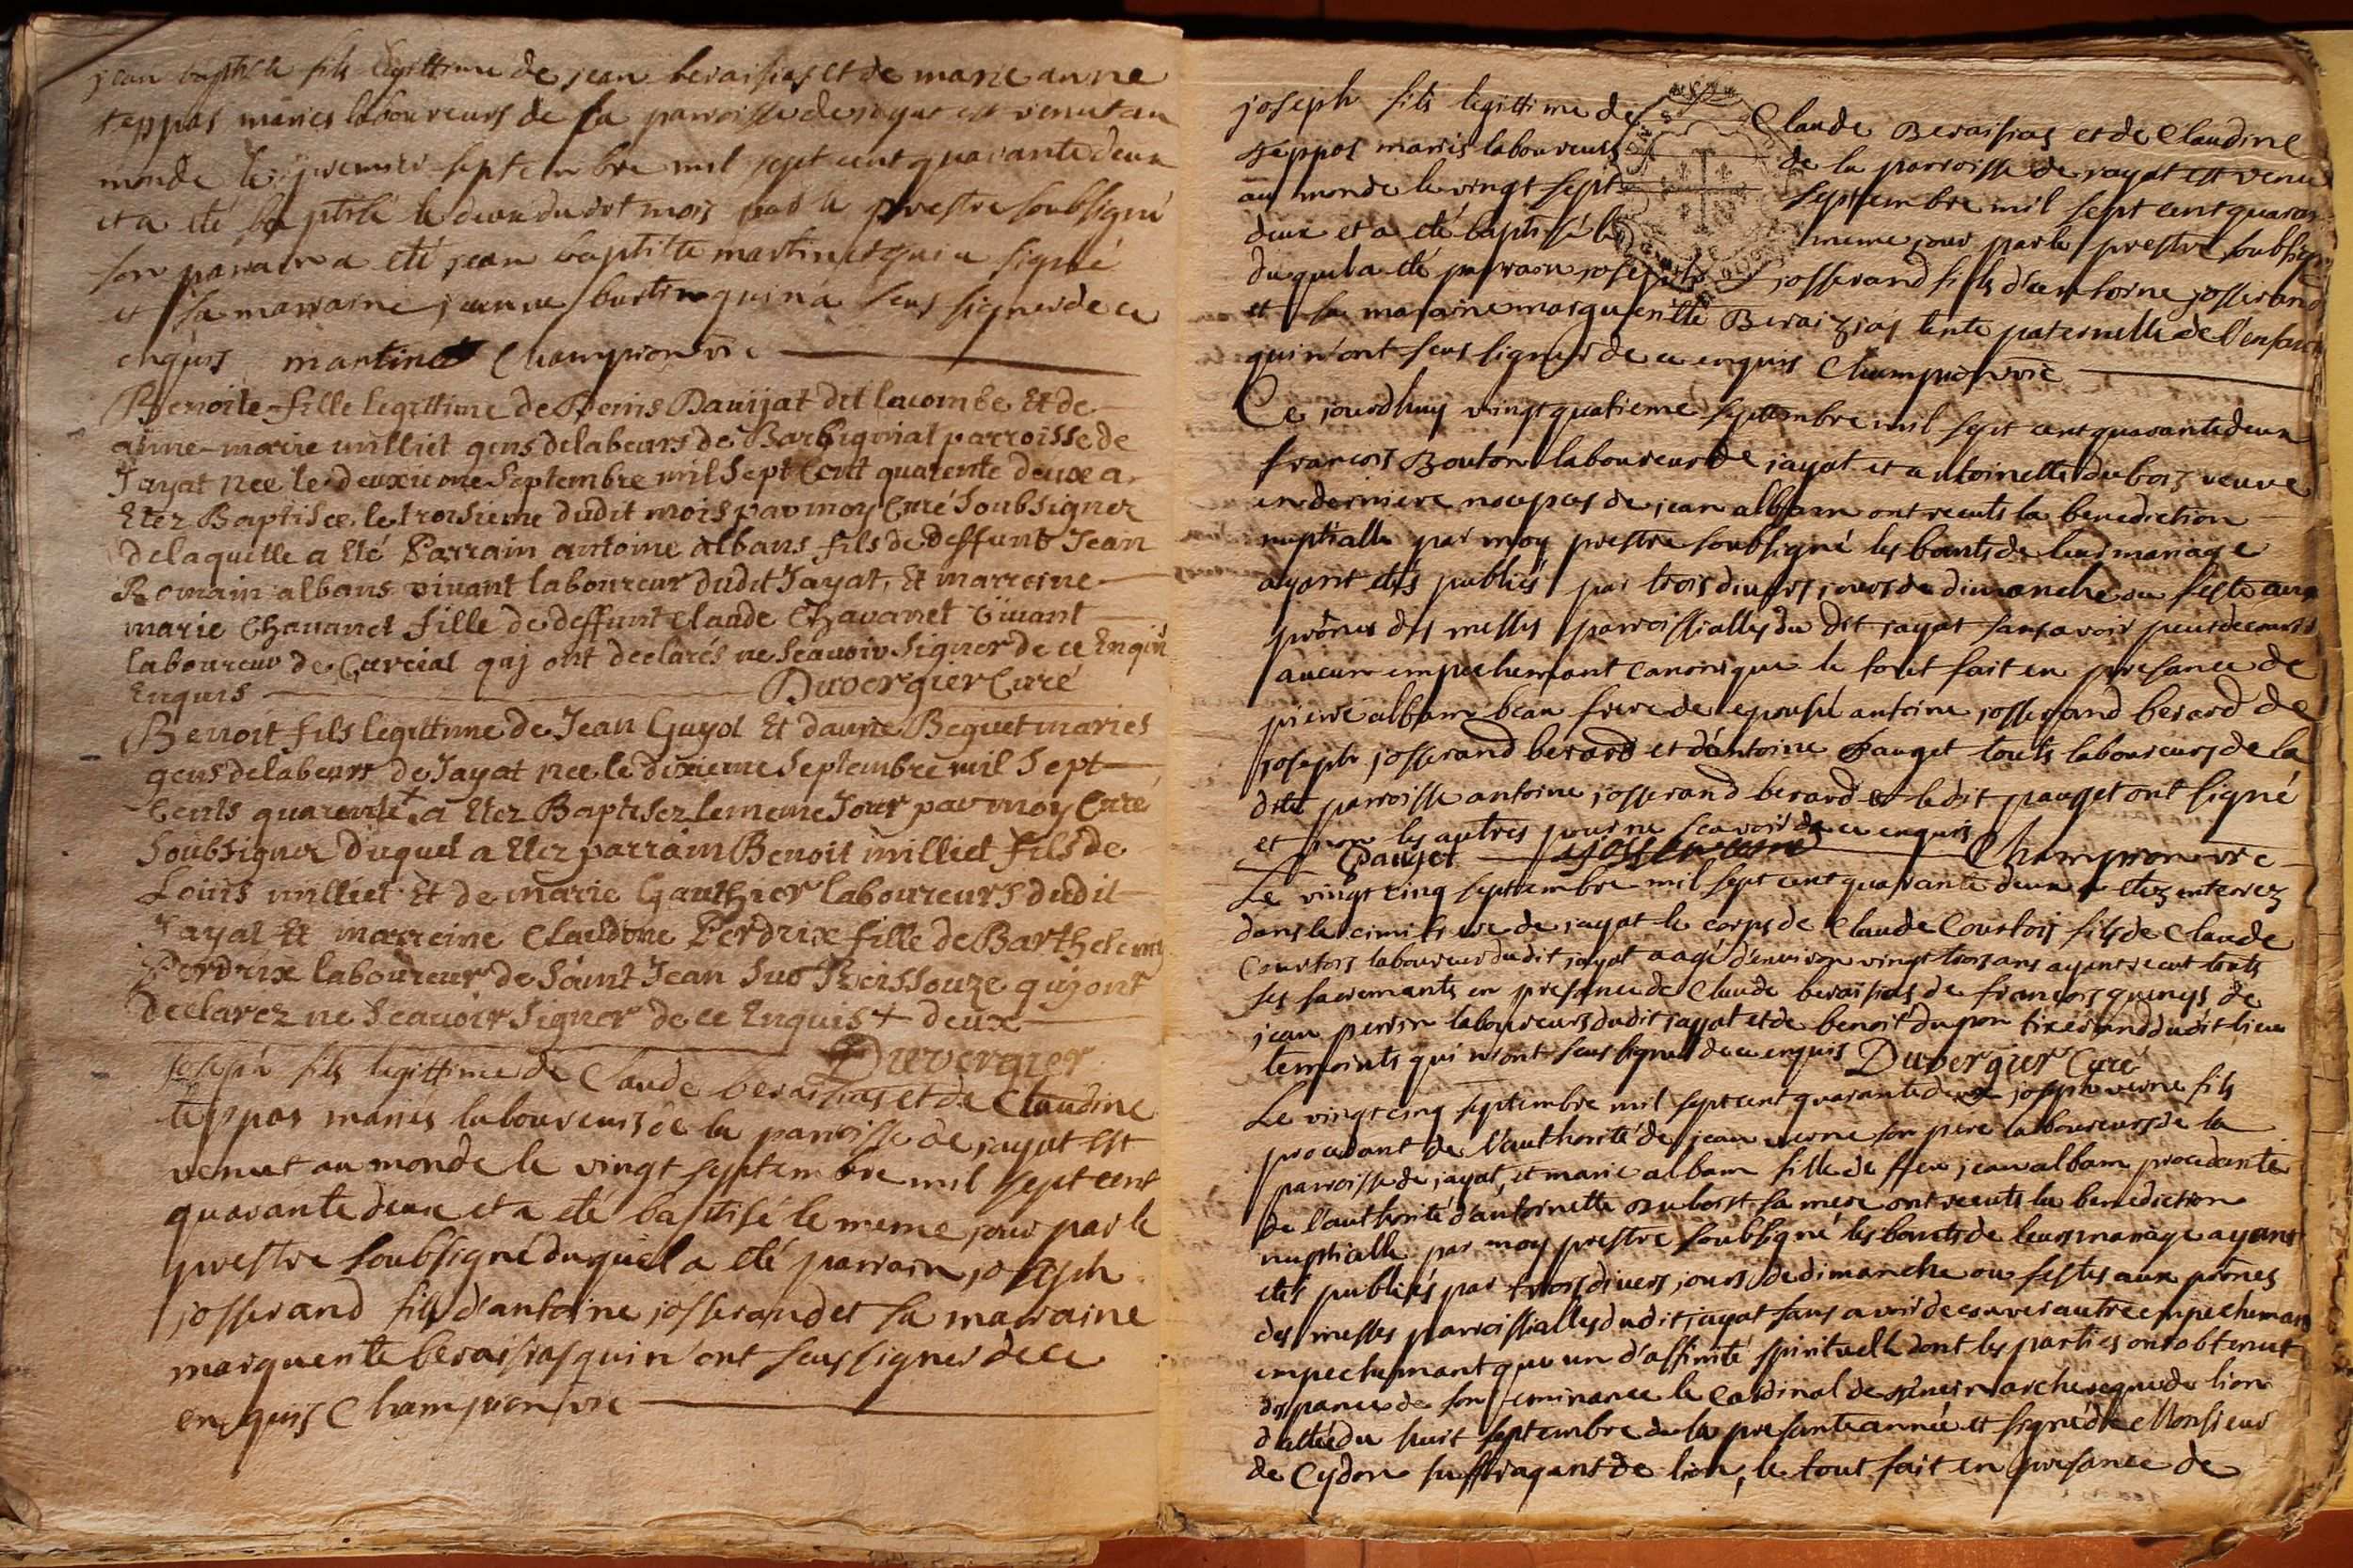 jean baptiste fils legittime de jean beraisias et de marie anne
teppas mariés laboureurs de la parroisse de jayat est venut au
monde le premier septembre mil sept cent quarante deux
et a eté baptisé le deux du dit mois par le prestre soubsigné
son parrain a eté jean baptiste martinet qui a signé
et sa marraine jeanne burtin qui n'a seus signer de ce
enquis martinet Champion vre
Benoite fille legittime de Denis Dauijat dit lacombe Et de
anne-marie milliet gens delabeurs de Barbignat parroisse de
Jayat née le deuxieme Septembre mil Sept Cent quarente deux a
Etez Baptisée le troisieme dudit mois par moy Curé Soubsigner
de laquelle a Eté Parrain antoine albans fils de deffunt Jean
Romain albans vivant laboureur dudit Jayat, Et marreine
marie Chavanet fille de deffunt Claude Chavanet vivant
laboureur de Curciat quj ont declarés ne Scauoir Signer de ce Enquis
Enquis Duvergier Curé
Benoit fils legittime de Jean Guyot Et danne Beguet mariés
gens delabeurs de Jayat née le dixieme Septembre mil Sept
Cents quarente + a Etez Baptisez le meme Jour par moy Curé
Soubsigner duquel a Etez parrain Benoit milliet fils de
Louis milliet Et de marie Gauthier laboureurs dudit
Jayat Et marreine Claudine Perdrix fille de Barthelemy
Perdrix laboureur de Saint Jean Sur Reissouze quj ont
declarez ne Scauoir Signer de ce Enquis + deux
Duvergier
joseph fils legittime de Claude beraisias et de Claudine
teppas mariés laboureurs de la parroisse de jayat est
venut au monde le vingt septembre mil sept cent
quarante deux et a eté baptisé le meme jour par le
prestre soubsigné duquel a eté parrain joseph
josserand fils d'antoine josserand et sa marraine
marguerite beraisias qui n'ont seus signer de ce
enquis Champion vre
joseph fils legittime de Claude Beraisias et de Claudine
teppas mariés laboureurs de la parroisse de jayat est venu
au monde le vingt sept septembre mil sept cent quaran
deux et a eté baptisé le meme jour par le prestre soubsig
duquel a eté parrain joseph josserand fils d'antoine josserand
et sa maraine margueritte Beraizias tente paternelle de l'enfant
qui n'ont seus signer de ce enquis Champion vre
Ce jourdhuy vingt quatieme septembre mil sept cent quarante deux
francois Bouton laboureur de jayat et antoinette dubois veuve
en derniere noepces de jean albam ont receuts la benediction
nuptialle par moy prestre soubsigné les bants de leur mariage
ayant etés publiés par trois divers jours de dimanche ou feste aux
prônes des messes parroissialles du dit jayat sans avoir peus decouvrir
aucun empechemant canonique le tout fait en presance de
pierre albam beau frere de l'epousé antoine josserand berard de
joseph josserand berard et d'antoine Pauget touts laboureurs de la
dite parroisse antoine josserand berard et le dit pauget ont signé
et non les autres pour ne scavoir de ce enquis
Pauget Champion vre
Le vingt cinq septembre mil sept cent quarante deux a etez enterrez
dans le cimitiere de jayat le corps de Claude Courtois fils de Claude
Courtois laboureur dudit jayat aagé d'environ vingt trois ans ayant receut touts
ses sacremants en presance de Claude beraisias de francois quinys de
jean perrin laboureurs dudit jayat et de benoit dupon tixerand dudit lieu
temoints qui n'ont seus signer de ce enquis Duvergier Curé
Le vingt cinq septembre mil sept cent quarante deux joseph verne fils
procedant de l'authorité de jean verne son pere laboureurs de la
parroisse de jayat, et marie albam fille de ffeu jean albam procedante
de l'authorité d'antoinette duboist sa mere ont receuts la benediction
nuptialle par moy prestre soubsigné les bants de leurs mariage ayants
etés publiés par trois divers jours de dimanche ou festes aux prônes
des messes parroissialles dudit jayat sans avoir decouver autre empechemant
empechemant que un d'affinité spirituelle dont les parties ont obtenut
dispance de son eminance le Cardinal de archeveque de lion
dattée du huit septembre de la presante année et signé de Monsieur
de Cydon suffragant de lion, le tout fait en presance de